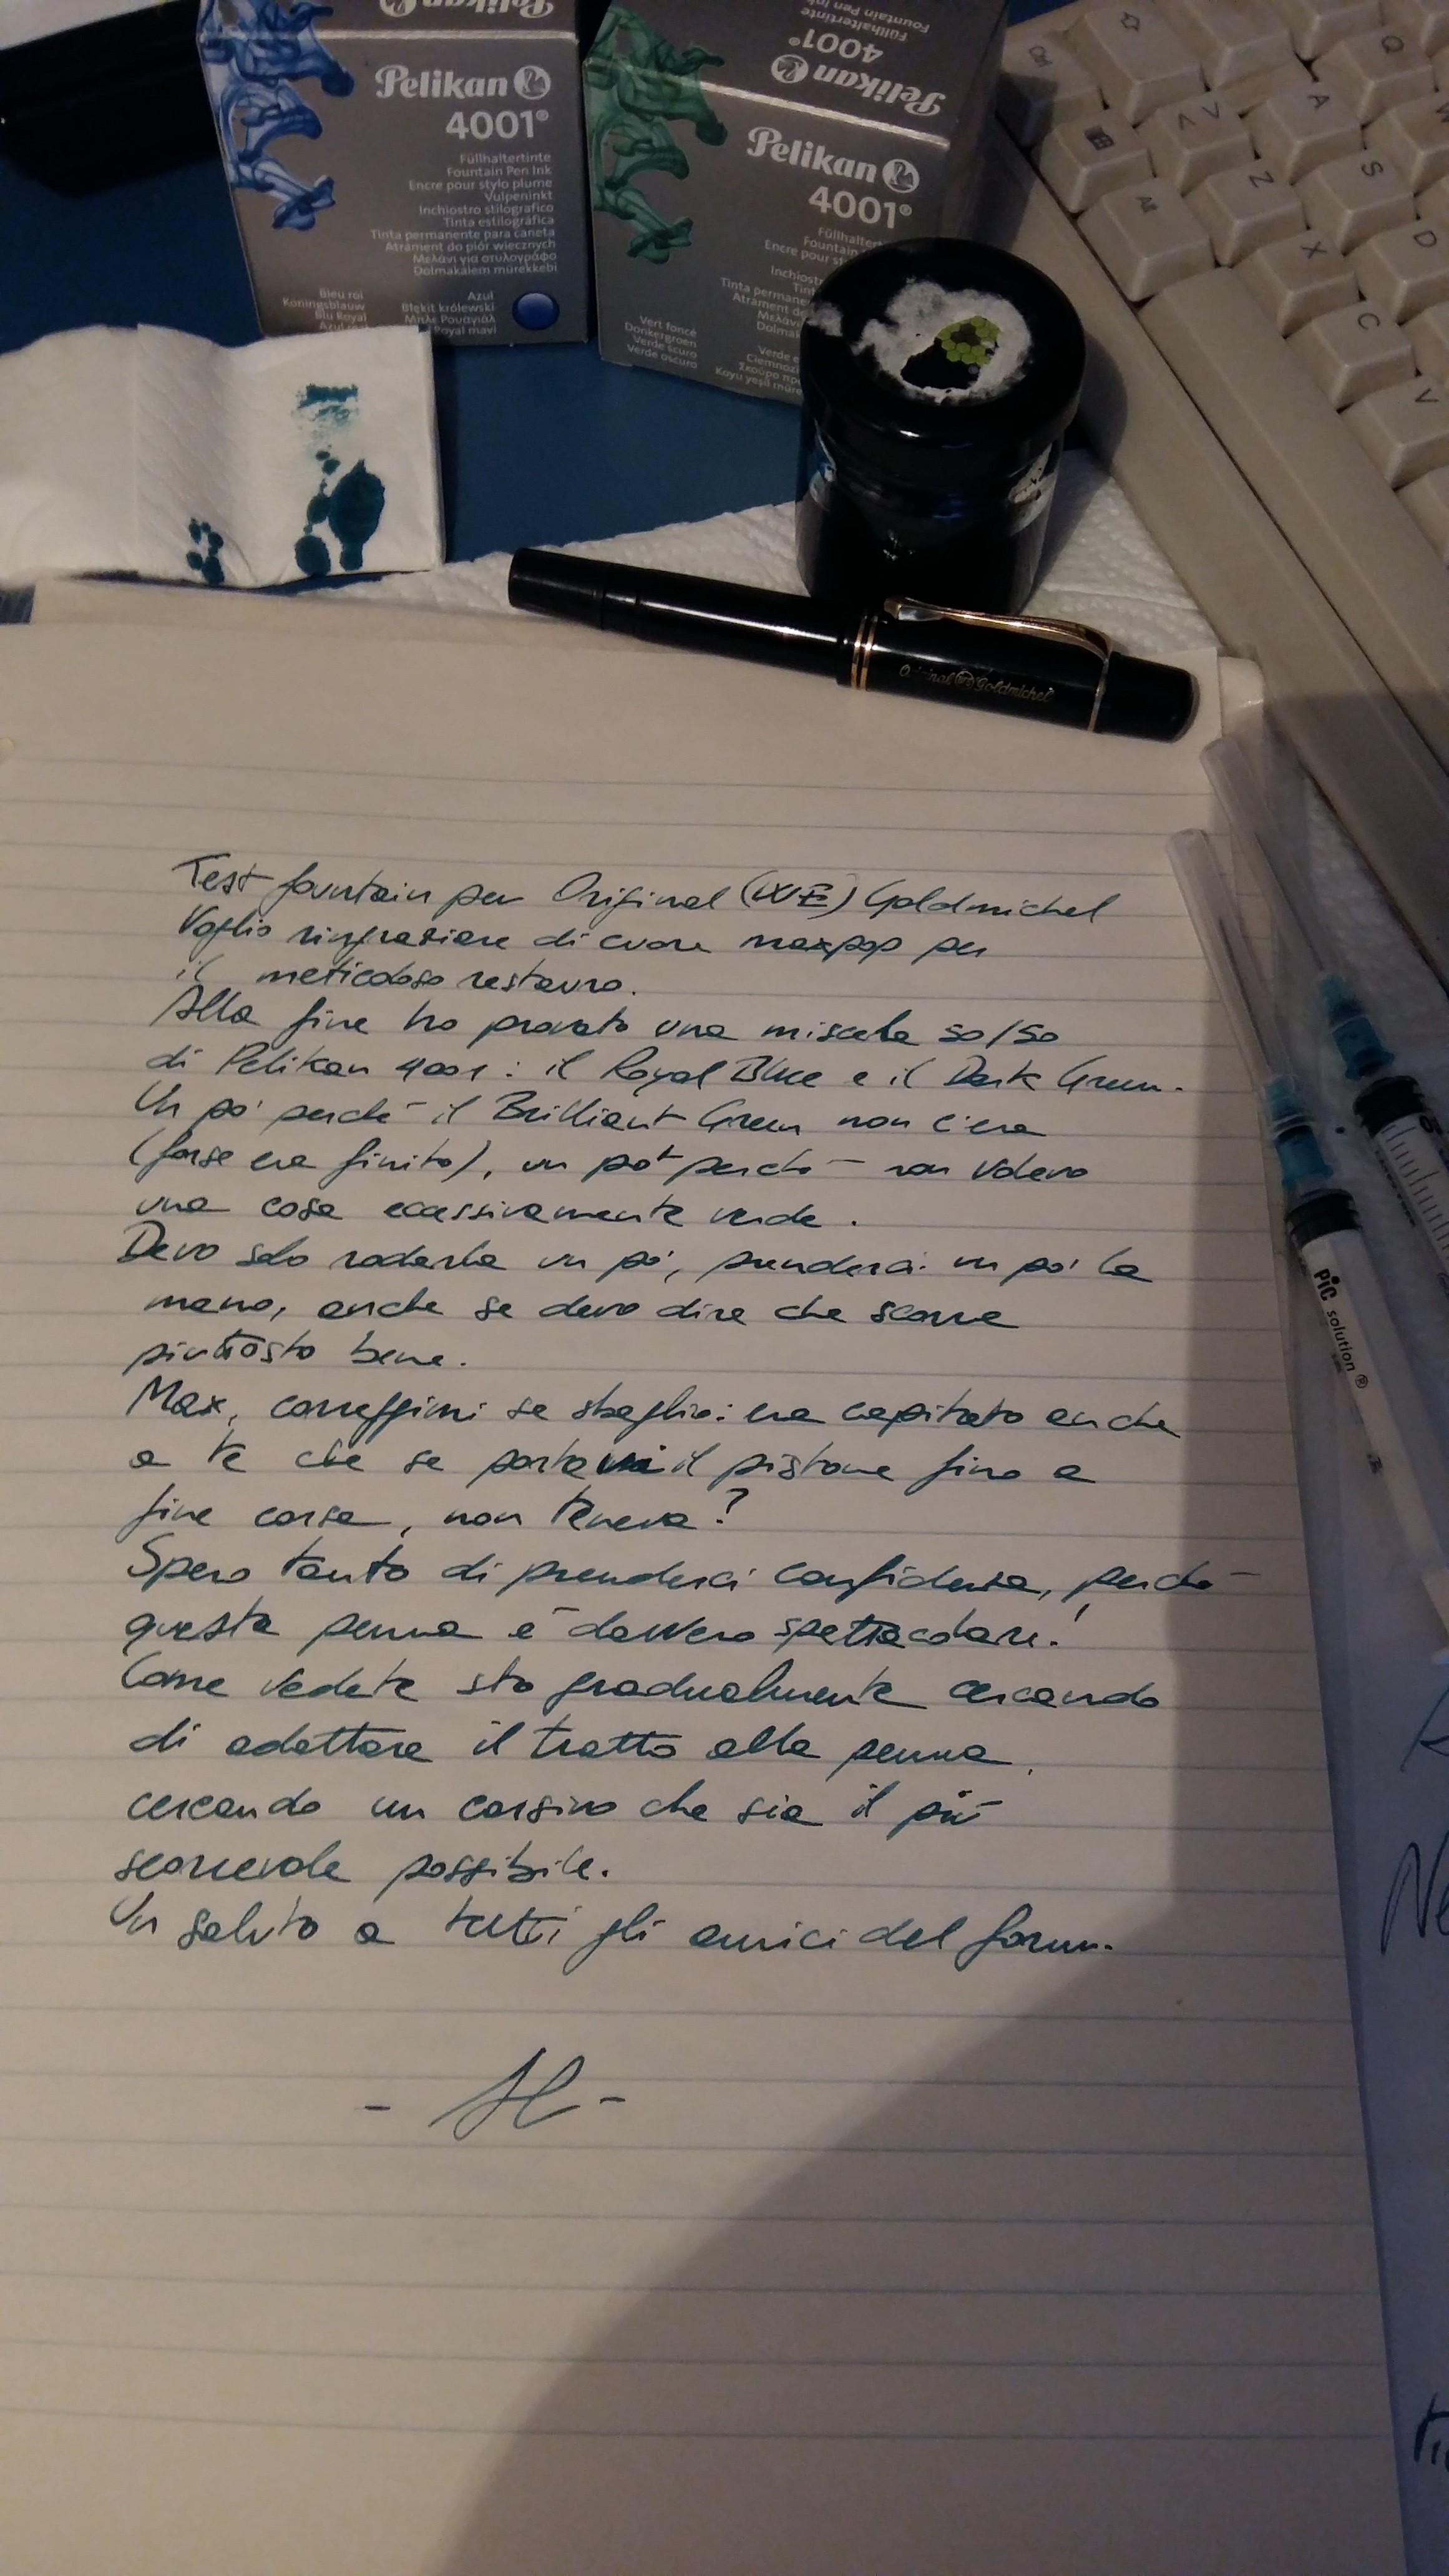 Pelikan
Pelikan
4001®
Füllhaltertinte
Fountain Pen Ink
Encre pour stylo plume
Vulpeninkt
Inchiostro stilografico
Tinta estilográfica
Tinta permanente para caneta
Atrament do piór wiecznych
Μελάνι για στυλογράφο
Dolmakalem mürekkebi
Bleu roi
Koningsblauw
Blu Royal
Azul
Błękit królewski
Μπλε Ρουαγιάλ
Royal mavi
Füllhaltertinte
Fountain Pen Ink
4001®
Pelikan
Pelikan
4001®
Vert foncé
Donkergroen
Verde scuro
Verde oscuro
Original Goldmichel
Test fountain pen Original (WE) Goldmichel
Voglio ringraziare di cuore maxpop per
il meticoloso restauro.
Alla fine ho provato una miscela 50/50
di Pelikan 4001: il Royal Blue e il Dark Green.
Un po' perché il Brilliant Green non c'era
(forse era finito), un po' perché non volevo
una cosa eccessivamente verde.
Devo solo rodarla un po', prenderci un po' la
mano, anche se devo dire che scorre
piuttosto bene.
Max, correggimi se sbaglio: era capitato anche
a te che se portavi il pistone fino a
fine corsa, non teneva?
Spero tanto di prenderci confidenza, perché
questa penna è davvero spettacolare!
Come vedete sto gradualmente cercando
di adattare il tratto alla penna,
cercando un corsivo che sia il più
scorrevole possibile.
Un saluto a tutti gli amici del forum.
PIC solution®
Q
A
W
Z
S
X
D
C
V
Alt